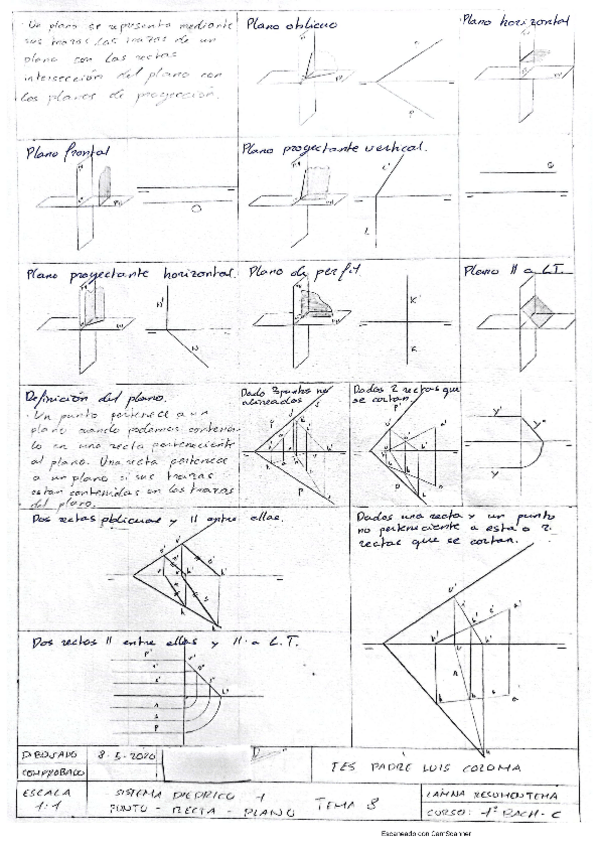 Un plano se representa mediante
sus trazas. Las trazas de un
plano son las rectas
intersección del plano con
los planos de proyección.
Plano oblicuo
Plano horizontal
Plano frontal
Plano proyectante vertical.
Plano proyectante horizontal.
Plano de perfil
Plano II a L.T.
Definición del plano.
Un punto pertenece a un
plano cuando podemos contener-
lo en una recta perteneciente
al plano. Una recta pertenece
a un plano si sus trazas
estan contenidas en las trazas
del plano.
Dado 3 puntos no
alineados
Dados 2 rectas que
se cortan.
Dos rectas oblicuas y II entre ellas.
Dados una recta y un punto
no perteneciente a esta o 2
rectas que se cortan.
Dos rectas II entre ellas y II a L.T.
DIBUJADO
8-5-2020
COMPROBADO
IES PADRE LUIS COLOMA
ESCALA
1:1
SISTEMA DIEDRICO 1
PUNTO - RECTA - PLANO
TEMA 8
LAMINA RESUMEN TEMA
CURSO: 1º BACH-C
Escaneado con CamScanner